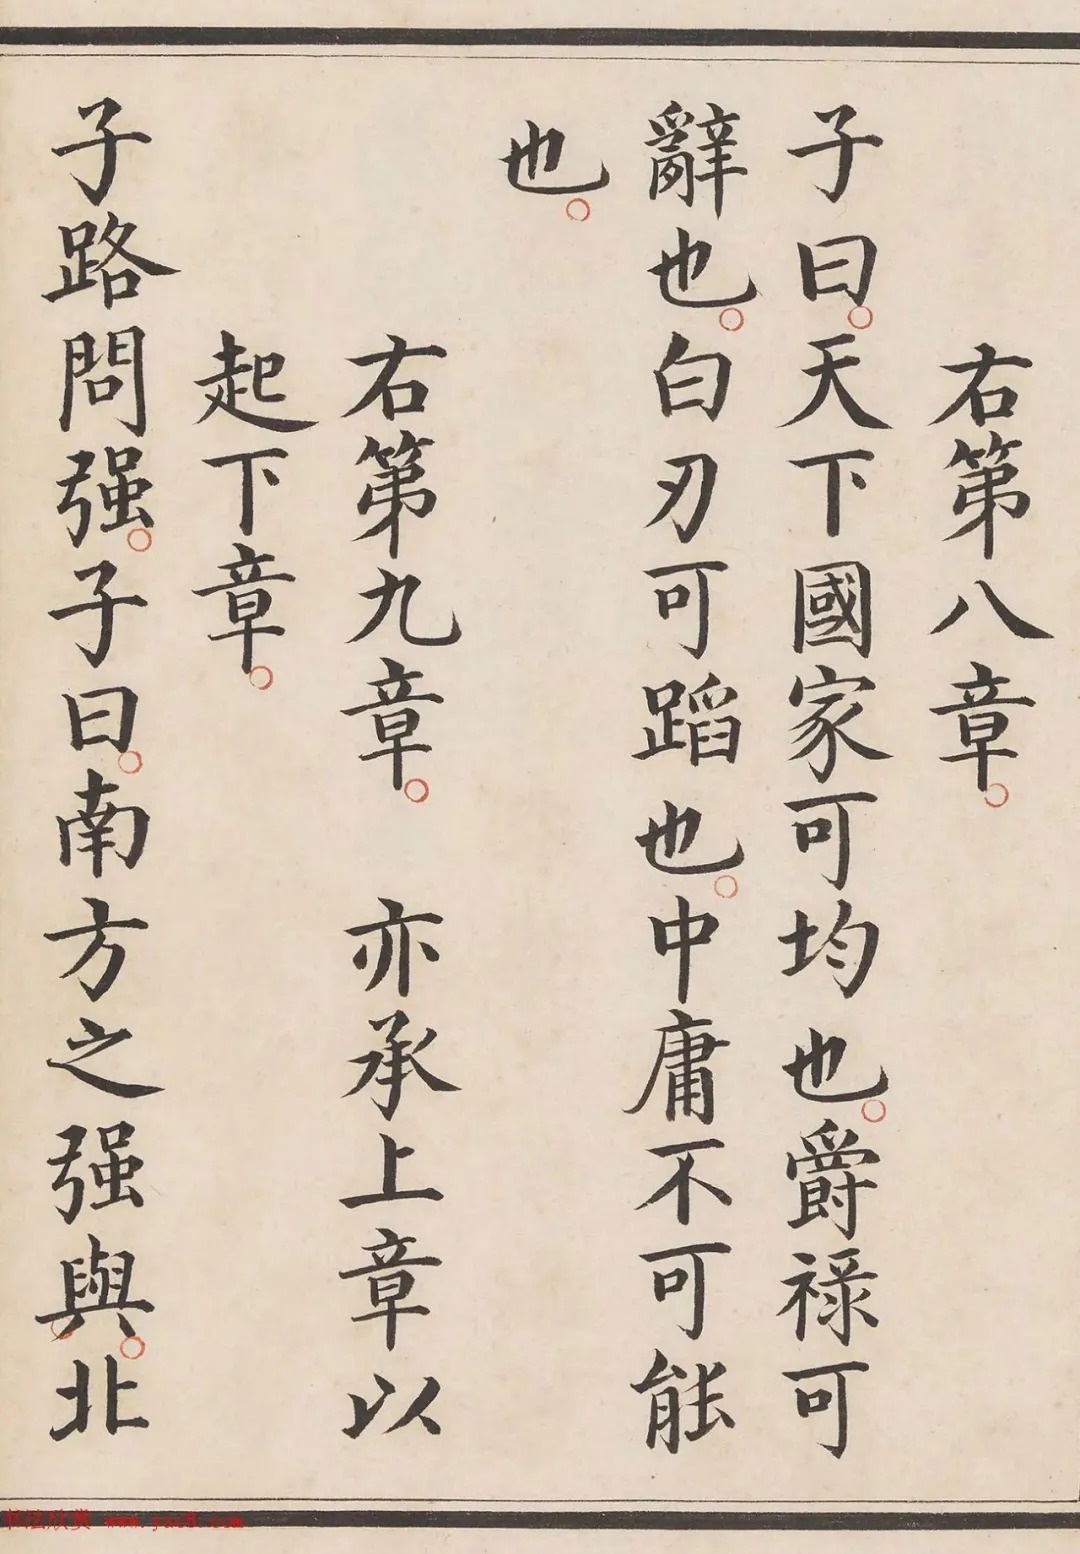 右第八章。
子曰。天下國家可均也。爵祿可
辭也。白刃可蹈也。中庸不可能
也。
右第九章。 亦承上章以
起下章。
子路問强。子曰。南方之强與。北
书法欣赏 www.yac8.com